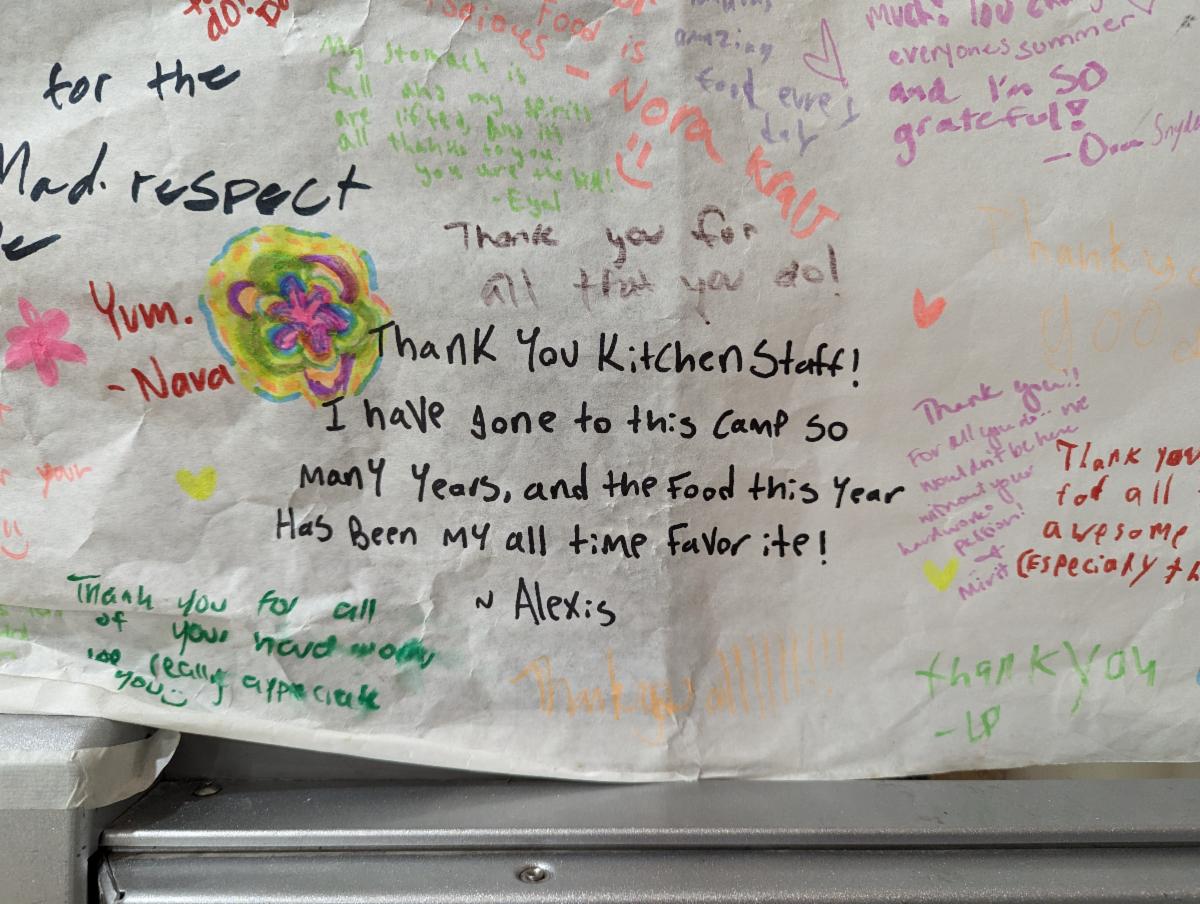 do!
for the
Mad. respect
Food is
- Nora Kraut
My stomach is
full and my spirits
are lifted, and its
all thanks to you.
you are the
- Eyal
amazing
food every
day
much! You
everyones summer
and I'm SO
grateful!
Thank you for
all that you do!
Yum.
- Nava
Thank You Kitchen Staff!
I have gone to this camp so
many years, and the food this year
Has Been my all time favorite!
~ Alexis
Thank
YOO
Thank you!!
For all you do... we
wouldn't be here
without your
hardwork &
passion!
Mirit
Thank you
for all
awesome
(Especially th
your
Thank you for all
of your hard work,
we really appreciate
you
Thank you all!!!!!!!
thank you
- LP